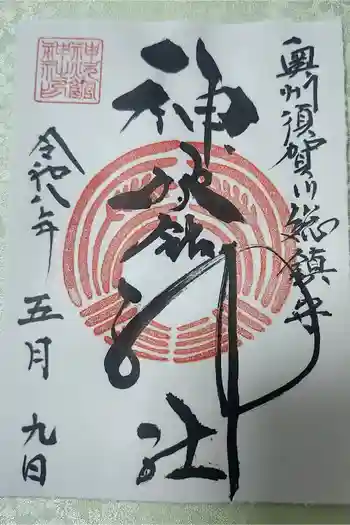 奥州須賀川総鎮守
神炊館神社
令和八年
五月九日